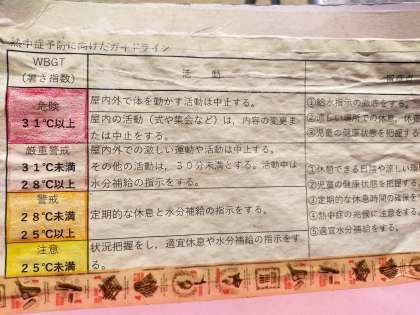 熱中症予防に向けたガイドライン
WBGT
(暑さ指数)
活　動
危険
31℃以上
屋内外で体を動かす活動は中止する。
屋内の活動（式や集会など）は，内容の変更ま
たは中止をする。
厳重警戒
31℃未満
28℃以上
屋内外での激しい運動や活動は中止する。
その他の活動は，30分未満とする。活動中は
水分補給の指示をする。
警戒
28℃未満
25℃以上
定期的な休息と水分補給の指示をする。
注意
25℃未満
状況把握をし，適宜休息や水分補給の指示をす
る。
①給水指示の徹底をする。
②涼しい場所での休息，休
③児童の健康状態を把握する
①休憩できる日陰や涼しい
②児童の健康状態を把握する
③定期的な休息時間の確保を
④熱中症の兆候に注意をする
⑤適宜水分補給をする。